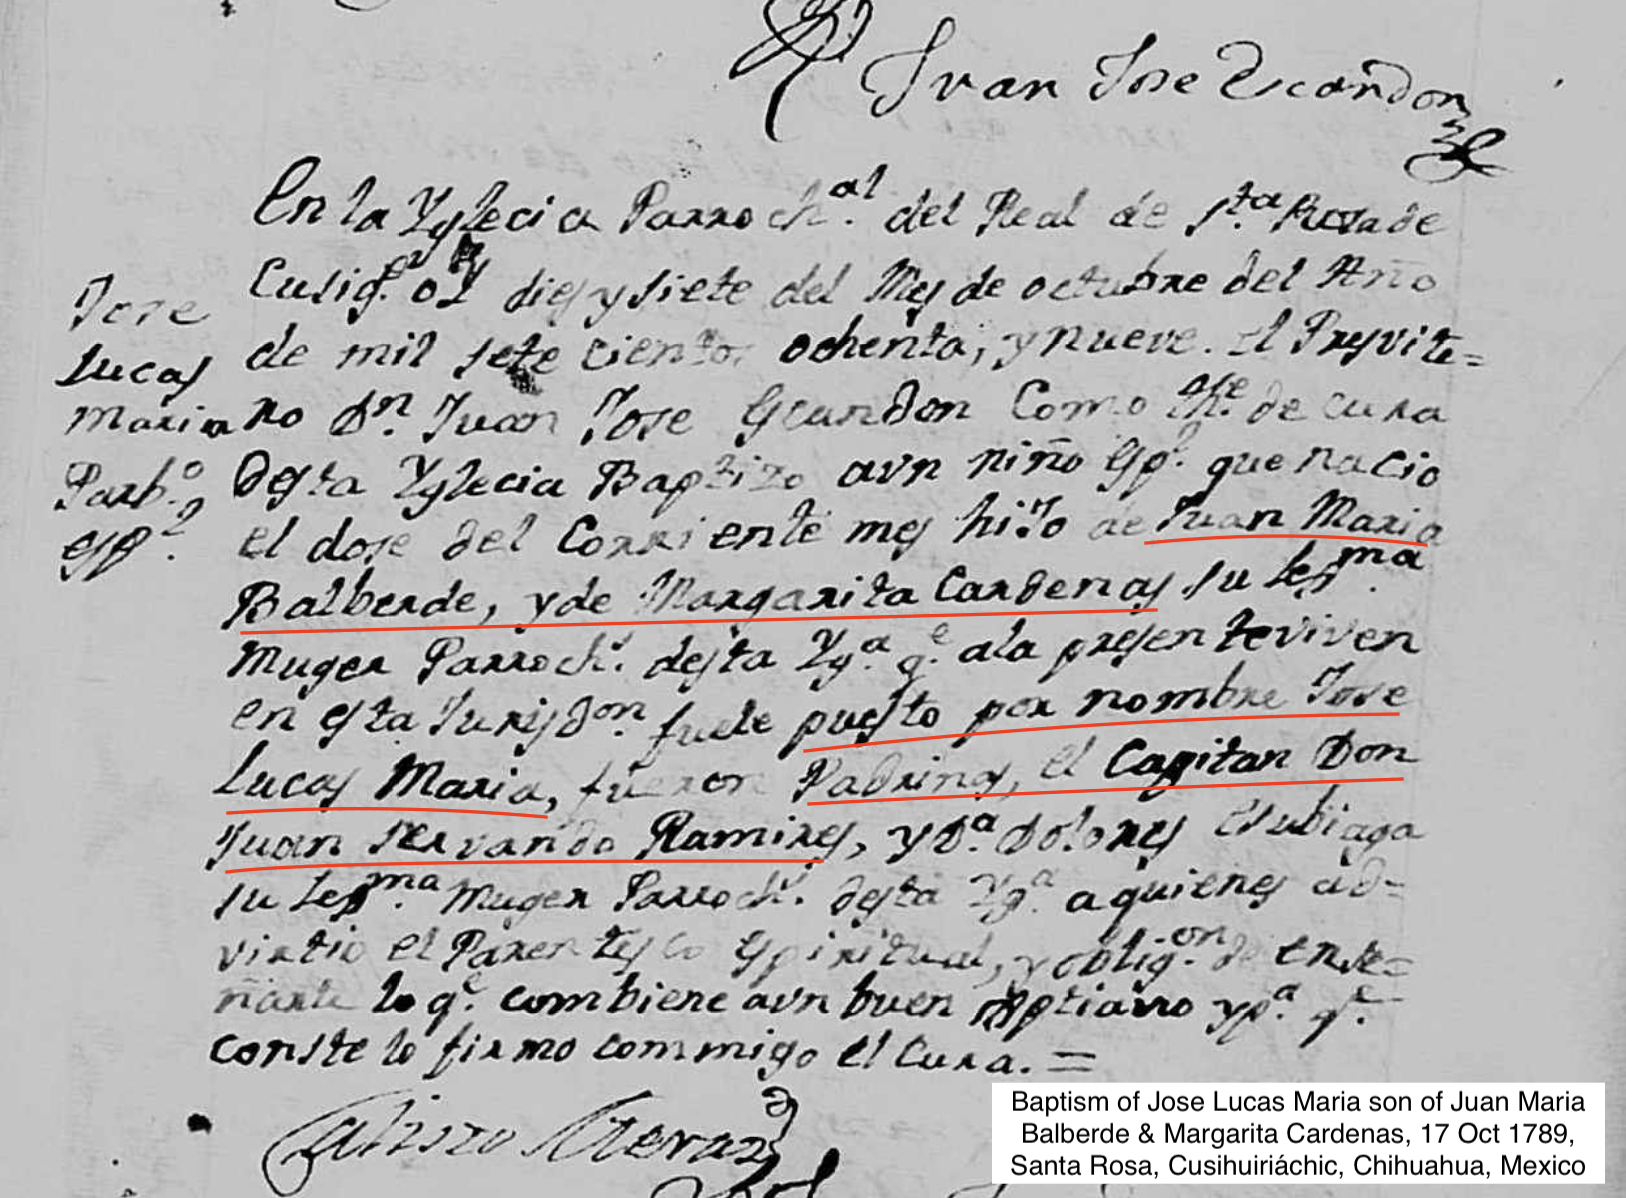 Juan Jose Escandon
En la Yglecia Parroch.al del Real de S.ta Rosa de
Cusig.e oy dies y siete del Mes de octubre del Año
de mil sete ciento, ochenta, y nueve. El Presvite=
ro D.n Juan Jose Escandon Como the.e de cura
desta Yglecia Baptizo a vn niño esp.l que nacio
el dose del Corriente mes hijo de Juan Maria
Balberde, y de Margarita Cardenas su Leg.ma
Muger Parroch.s desta Yg.a q.e a la presente viven
en esta Jurisd.on fuele puesto por nombre Jose
Lucas Maria, fueron Padrinos, el Capitan Don
Juan Servando Ramires, y D.a Dolores
su Leg.ma Muger Parroch.s desta Yg.a a quienes ad=
virtio el Parentesco Espiritual, y oblig.on de ense=
ñarle lo q.e combiene a vn buen y p.a q.e
conste lo firmo commigo el Cura. =
Jose
Lucas
Maria
Parb.o
esp.l
Baptism of Jose Lucas Maria son of Juan Maria
Balberde & Margarita Cardenas, 17 Oct 1789,
Santa Rosa, Cusihuiriáchic, Chihuahua, Mexico